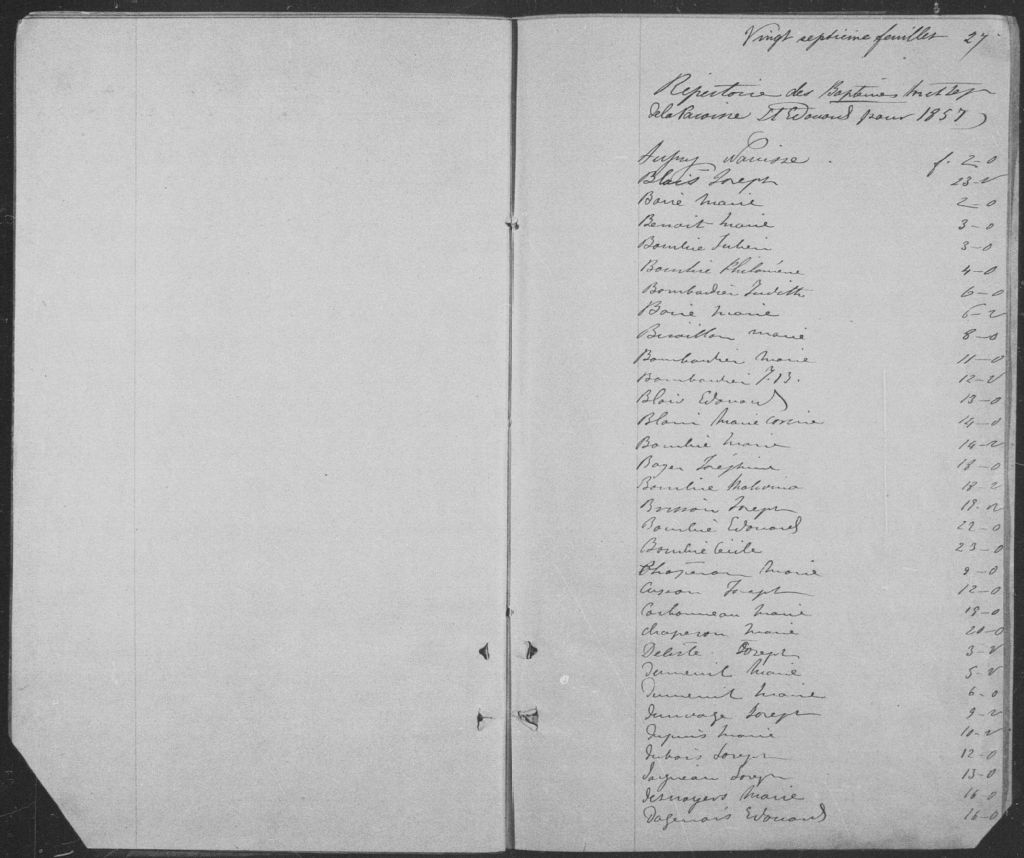 Vingt septième feuillet 27
Répertoire des Baptêmes
de la Paroisse St Edouard pour 1857
Narcisse f. 2-0
Blais Joseph 23-v
Boire Marie 2-0
Benoit Marie 3-0
Bombrié Julien 3-0
Philomène 4-0
Bombardier Judith 6-0
Boire Marie 6-v
Marie 8-0
Bombardier Marie 11-0
Bombardier J.B. 12-v
Blais Edouard 13-0
Marie 14-0
Marie 14-v
Boyer Joséphine 18-0
18-v
Brisson Joseph 18-v
Edouard 22-0
Cécile 23-0
Chaperon Marie 9-0
Joseph 12-0
Carbonneau Marie 19-0
Chaperon Marie 20-0
Deliste Joseph 3-v
Dumenil Marie 5-v
Dumenil Marie 6-0
Joseph 9-v
Dupuis Marie 10-v
Dubois Joseph 12-0
Joseph 13-0
Desnoyers Marie 16-0
Dagenais Edouard 16-0